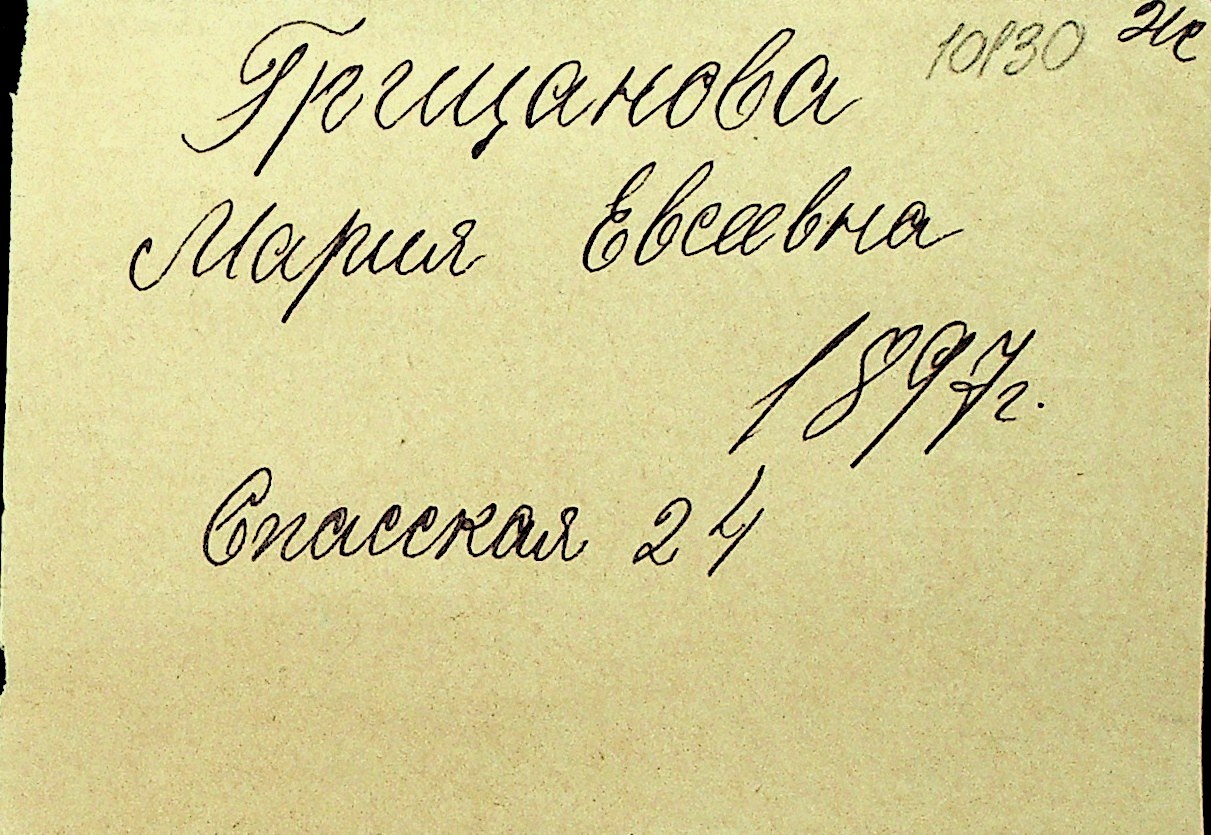 10130 Же
Грищанова
Мария Евсеевна
1897г.
Спасская 24